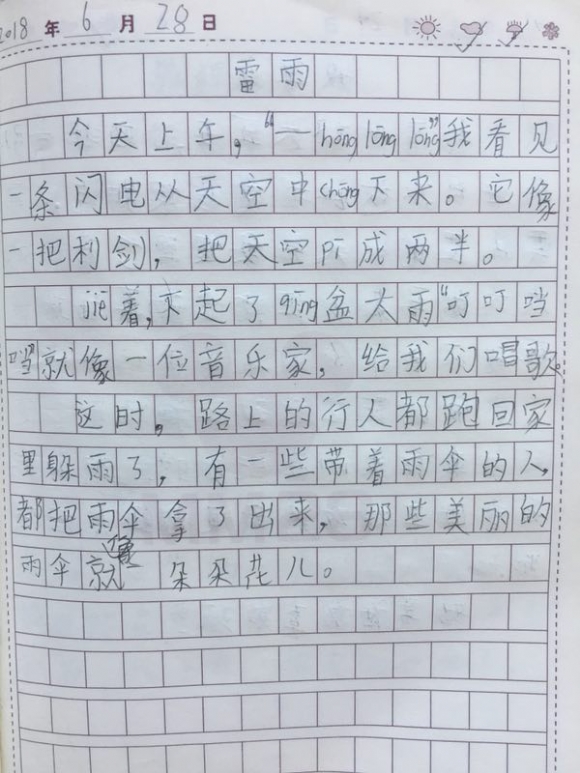 2018年6月28日
雷雨
今天上午，“一hōng lōng lōng”我看见
一条闪电从天空中chōng下来。它像
一把利剑，把天空pī成两半。
jiē着，下起了qīng盆大雨“叮叮当
当”就像一位音乐家，给我们唱歌。
这时，路上的行人都跑回家
里躲雨了，有一些带着雨伞的人，
都把雨伞拿了出来，那些美丽的
雨伞就像朵朵花儿。